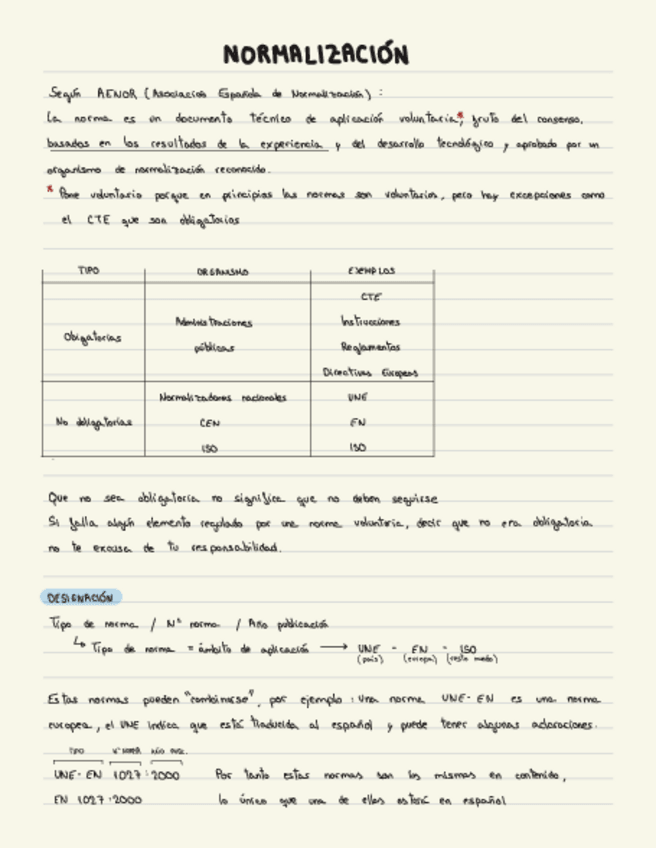 NORMALIZACIÓN
Según AENOR (Asociación Española de Normalización) :
La norma es un documento técnico de aplicación voluntaria*, fruto del consenso,
basados en los resultados de la experiencia y del desarrollo tecnológico y aprobado por un
organismo de normalización reconocido.
* Pone voluntario porque en principios las normas son voluntarios, pero hay excepciones como
el CTE que son obligatorios
TIPO ORGANISMO EJEMPLOS
Obligatorias
Administraciones
públicas
CTE
Instrucciones
Reglamentos
Directivas Europeas
No obligatorias
Normalizadores nacionales UNE
CEN EN
ISO ISO
Que no sea obligatoria no significa que no deben seguirse
Si falla algún elemento regulado por una norma voluntaria, decir que no era obligatoria
no te excusa de tu responsabilidad.
DESIGNACIÓN
Tipo de norma / Nº norma / Año publicación
↳ Tipo de norma = ámbito de aplicación → UNE - EN - ISO
(país) (europa) (resto mundo)
Estas normas pueden "combinarse", por ejemplo : una norma UNE-EN es una norma
europea, el UNE indica que está traducida al español y puede tener algunas aclaraciones.
TIPO Nº NORMA AÑO PUBL.
UNE-EN 1027:2000 Por tanto estas normas son las mismas en contenido,
EN 1027:2000 lo único que una de ellas estará en español